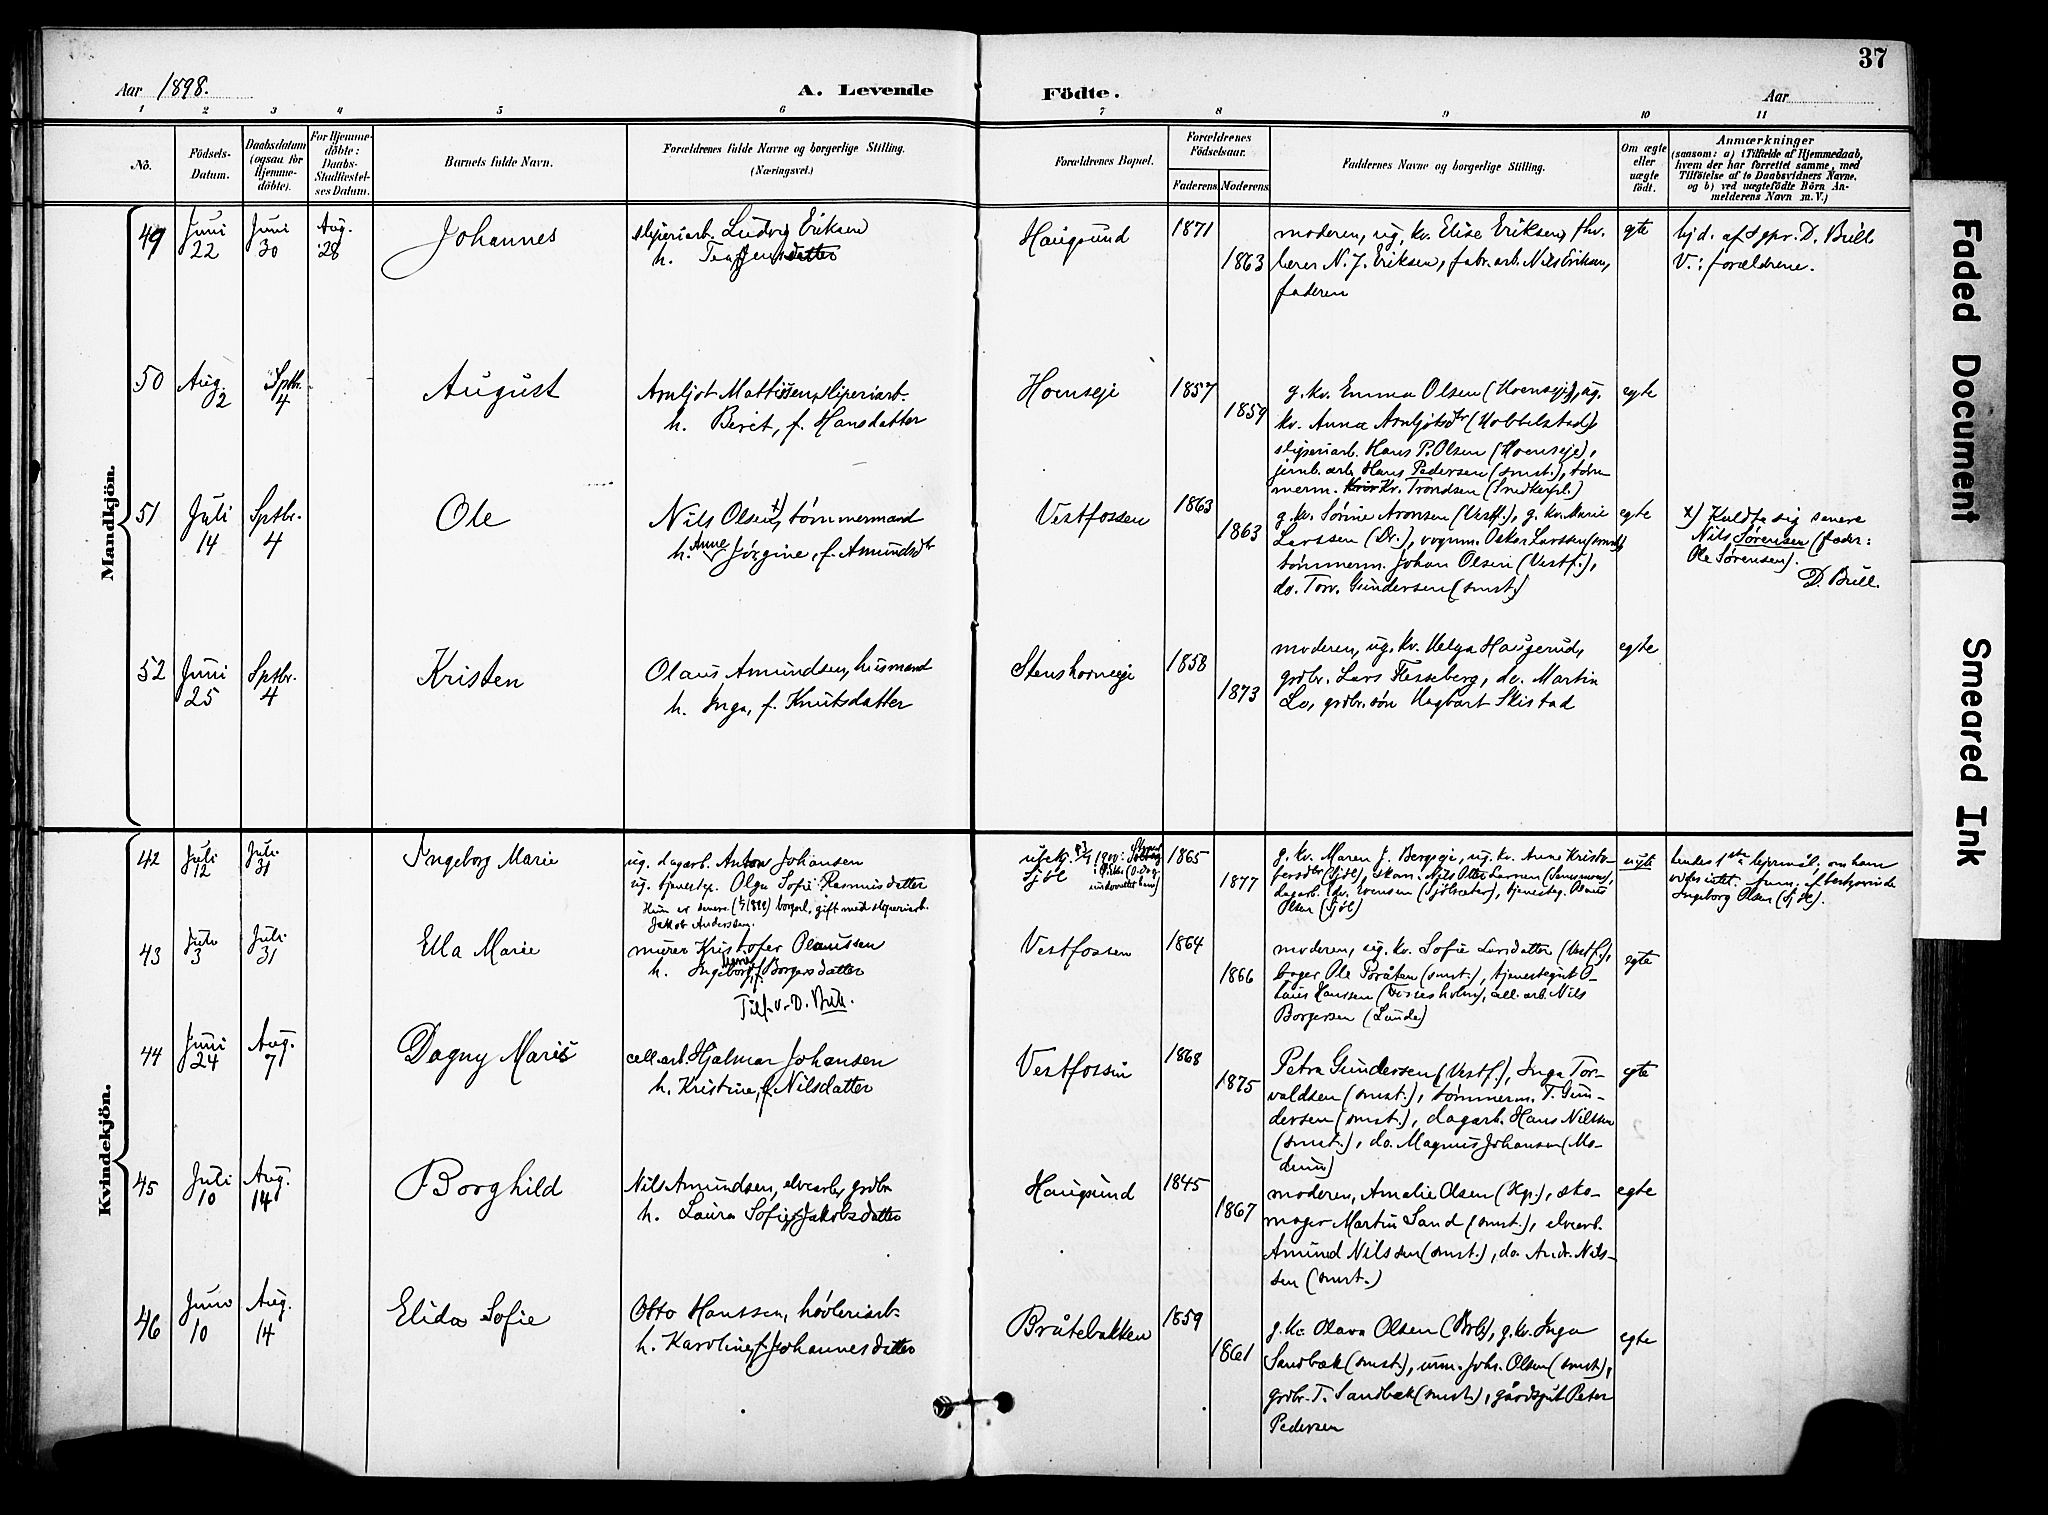 37
Aar 1898.
A. Levende Födte.
Aar
1 2 3 4 5 6 7 8 9 10 11
No.
Födsels-
Datum.
Daabsdatum
(ogsaa for
Hjemme-
döbte).
For Hjemme-
döbte:
Daabs-
Stadfæstel-
ses Datum.
Barnets fulde Navn.
Forældrenes fulde Navne og borgerlige Stilling.
(Næringsvei.)
Forældrenes Bopæl.
Forældrenes
Födselsaar.
Faderens Moderens
Faddernes Navne og borgerlige Stilling.
Om ægte
eller
uægte
födt.
Anmærkninger
(saasom: a) i Tilfælde af Hjemmedaab,
hvem der har forrettet samme, med
Tilföielse af to Daabsvidners Navne,
og b) ved uægtefödte Börn An-
melderens Navn m. V.)
Mandkjön.
49
Juni
22
Juni
30
Aug.
28
Johannes
sliperiarb. Ludvig Eriksen
h. Tea Jensdatter
Haugsund
1871
1863
moderen, ug. kv. Elise Eriksen, fhv.
lærer N. J. Eriksen, fabr. arb. Nils Eriksen,
faderen
egte
hjd. af sgpr. D. Bull
V.: forældrene.
50
Aug.
2
Sptbr.
4
August
Arnljot Mattissen, sliperiarb.
h. Berit, f. Hansdatter
Hoenseje
1857
1859
g. kv. Emma Olsen (Hoenseje), ug.
kv. Anna Arnljotsdr (Hobbelstad),
sliperiarb. Hans P. Olsen (Hoenseje),
jernb. arb. Hans Pedersen (smst.), tøm-
merm. Kr. Trondsen (Snedkerpl.)
egte
51
Juli
14
Sptbr.
4
Ole
Nils Olsen x), tømmermand
h. Anne Jørgine, f. Amundsdtr
Vestfossen
1863
1863
g. kv. Sørine Aronsen (Vestf.), g. kv. Marie
Larssen (Dr.), vognm. Oskar Larssen (smst.)
tømmerm. Johan Olsen (Vestf.),
do. Torv. Gundersen (smst.)
egte
x) Kaldte sig senere
Nils Sørensen (fader:
Ole Sørensen).
D. Bull.
52
Juni
25
Sptbr.
4
Kristen
Olaus Amundsen, husmand
h. Inga, f. Knutsdatter
Stenshorneje
1858
1873
moderen, ug. kv. Helga Haugerud,
grdbr. Lars Flesseberg, do. Martin
Lo, grdbr. søn Hagbart Skistad
egte
Kvindekjön.
42
Juli
12
Juli
31
Ingeborg Marie
ug. dagarb. Anton Johansen
ug. tjenestep. Olga Sofie Rasmusdatter
Hun er senere borgerl. gift med sliperiarb.
Jakob Andersen.
Sjøl
1865
1877
g. kv. Maren J. Bergseje, ug. kv. Anne Kristo-
fersdtr (Sjøl), skom. Nils Otter Larssen
dagarb. Edv. Evensen (Sjølsæter), tjenesteg.
Olsen (Sjøl)
uegte
hendes 1ste lejermål, om ham
vides intet. Anm. af bestyrerinde
Ingeborg Olsen (Sjøl).
43
Juli
3
Juli
31
Ella Marie
murer Kristofer Olaussen
h. Ingeborg, f. Borgersdatter
Tilf. v. D. Bull.
Vestfossen
1864
1866
moderen, ug. kv. Sofie Larsdatter (Vestf.),
bager Ole Bråten (smst.), tjenestegut O-
laus Hanssen (Fossesholm), cell. arb. Nils
Borgersen (Lunde)
egte
44
Juni
24
Aug.
7
Dagny Marie
cell. arb. Hjalmar Johansen
h. Kristine, f. Nilsdatter
Vestfossen
1868
1875
Petra Gundersen (Vestf.), Inga Tor-
valdsen (smst.), tømmerm. T. Gun-
dersen (smst.), dagarb. Hans Nilssen
(smst.), do. Magnus Johansen (Mo-
dum)
egte
45
Juli
10
Aug.
14
Borghild
Nils Amundsen, elvearb. grdbr
h. Laura Sofie, f. Jakobsdatter
Haugsund
1845
1867
moderen, Amalie Olsen (Hp.), sko-
mager Martin Sand (smst.), elvearb.
Amund Nilssen (smst.), do. Andr. Nils-
sen (smst.)
egte
46
Juni
10
Aug.
14
Elida Sofie
Otto Hanssen, høvleriarb.
h. Karoline, f. Johannesdatter
Bråtebakken
1859
1861
g. kv. Olava Olsen (Brb), g. kv. Inga
Sandbæk (smst.), urm. Johs. Olsen (smst.),
grdbr. T. Sandbæk (smst.), gårdsgut Peter
Pedersen
egte
Faded Document
Smeared Ink